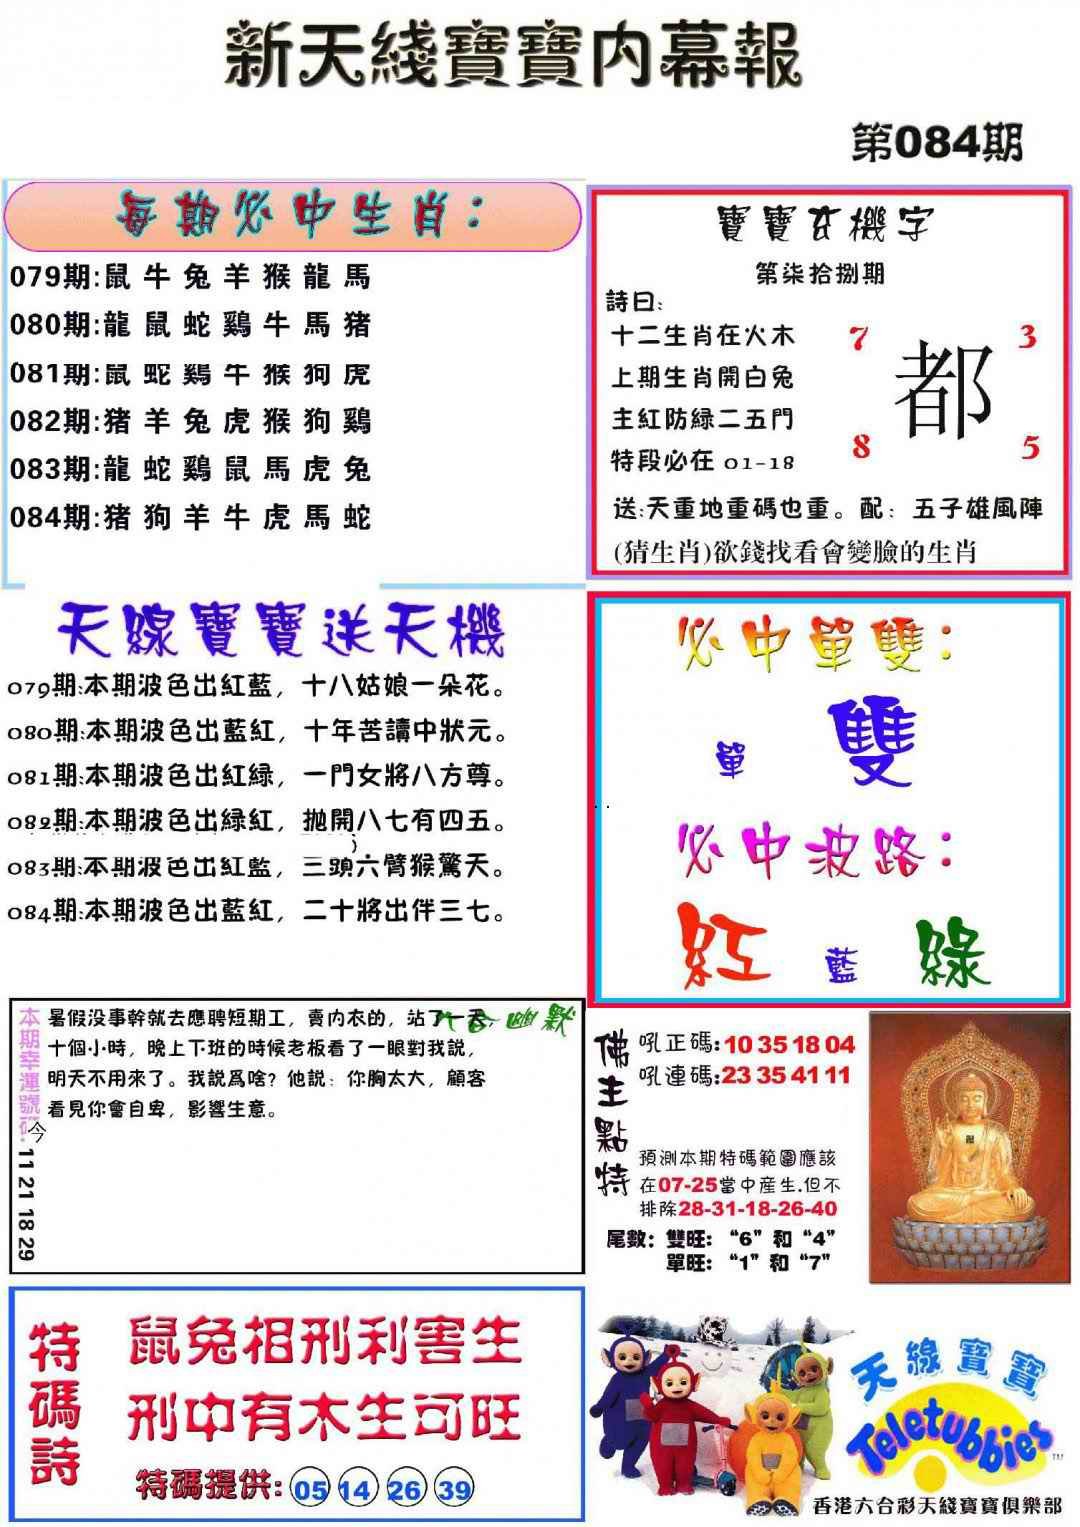 新天綫寶寶内幕報
第084期
每期必中生肖：
079期:鼠 牛 兔 羊 猴 龍 馬
080期:龍 鼠 蛇 鷄 牛 馬 猪
081期:鼠 蛇 鷄 牛 猴 狗 虎
082期:猪 羊 兔 虎 猴 狗 鷄
083期:龍 蛇 鷄 鼠 馬 虎 兔
084期:猪 狗 羊 牛 虎 馬 蛇
寶寶玄機字
第柒拾捌期
詩曰:
十二生肖在火木
上期生肖開白兔
主紅防緑二五門
特段必在 01-18
7 3
都
8 5
送:天重地重碼也重。配：五子雄風陣
(猜生肖)欲錢找看會變臉的生肖
天線寶寶送天機
079期:本期波色出紅藍，十八姑娘一朵花。
080期:本期波色出藍紅，十年苦讀中狀元。
081期:本期波色出紅緑，一門女將八方尊。
082期:本期波色出緑紅，抛開八七有四五。
083期:本期波色出紅藍，三頭六臂猴驚天。
084期:本期波色出藍紅，二十將出伴三七。
必中單雙：
單 雙
必中波路：
紅 藍 綠
六合幽默
暑假没事幹就去應聘短期工，賣内衣的，站了一天，
十個小時，晚上下班的時候老板看了一眼對我説，
明天不用來了。我説爲啥？他説：你胸太大，顧客
看見你會自卑，影響生意。
本期幸運號碼:
今
11 21 18 29
佛主點特
吼正碼:10 35 18 04
吼連碼:23 35 41 11
預測本期特碼範圍應該
在07-25當中産生.但不
排除28-31-18-26-40
尾數：雙旺：“6”和“4”
單旺：“1”和“7”
特碼詩
鼠兔相刑利害生
刑中有木生可旺
特碼提供: 05 14 26 39
天線寶寶
Teletubbies
TM
香港六合彩天綫寶寶俱樂部